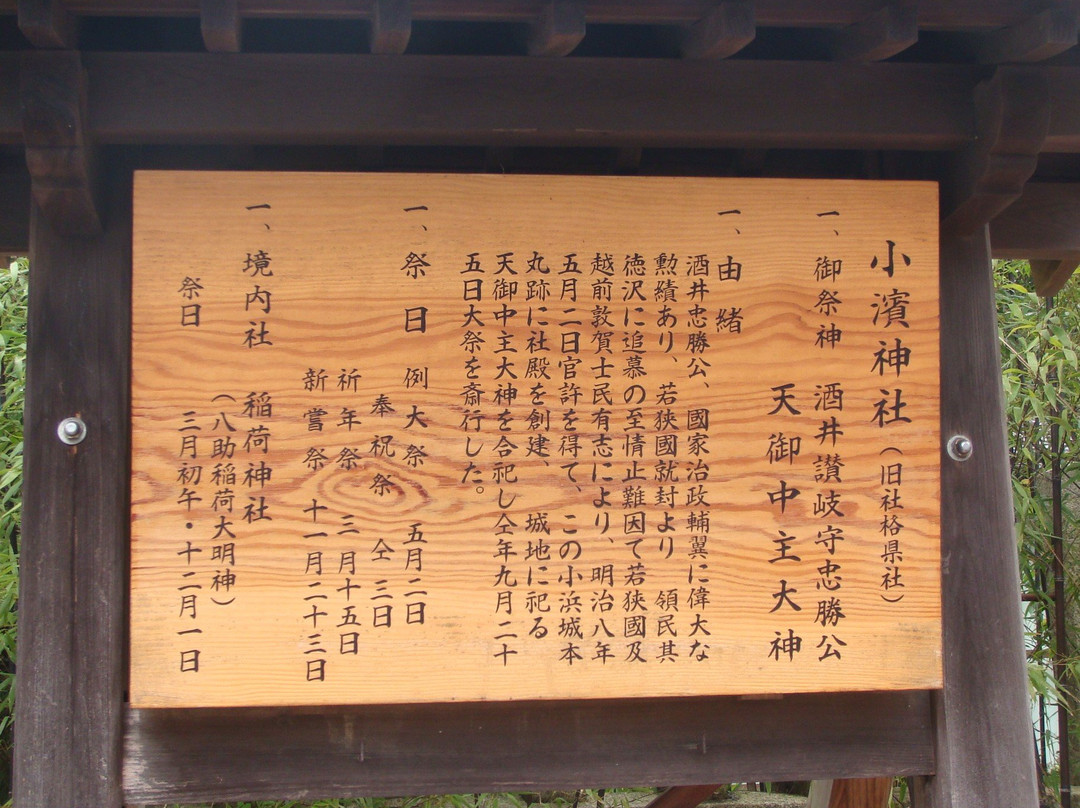 小濱神社（旧社格県社）
一、御祭神　酒井讃岐守忠勝公
天御中主大神
一、由緒
酒井忠勝公、國家治政輔翼に偉大な
勲績あり、若狹國就封より　領民其
徳沢に追慕の至情止難因て若狹國及
越前敦賀士民有志により、明治八年
五月二日官許を得て、この小浜城本
丸跡に社殿を創建、　城地に祀る
天御中主大神を合祀し仝年九月二十
五日大祭を斎行した。
一、祭日　例大祭　五月二日
奉祝祭　仝　三日
祈年祭　三月十五日
新嘗祭　十一月二十三日
一、境内社　稲荷神社
（八助稲荷大明神）
祭日　三月初午・十二月一日